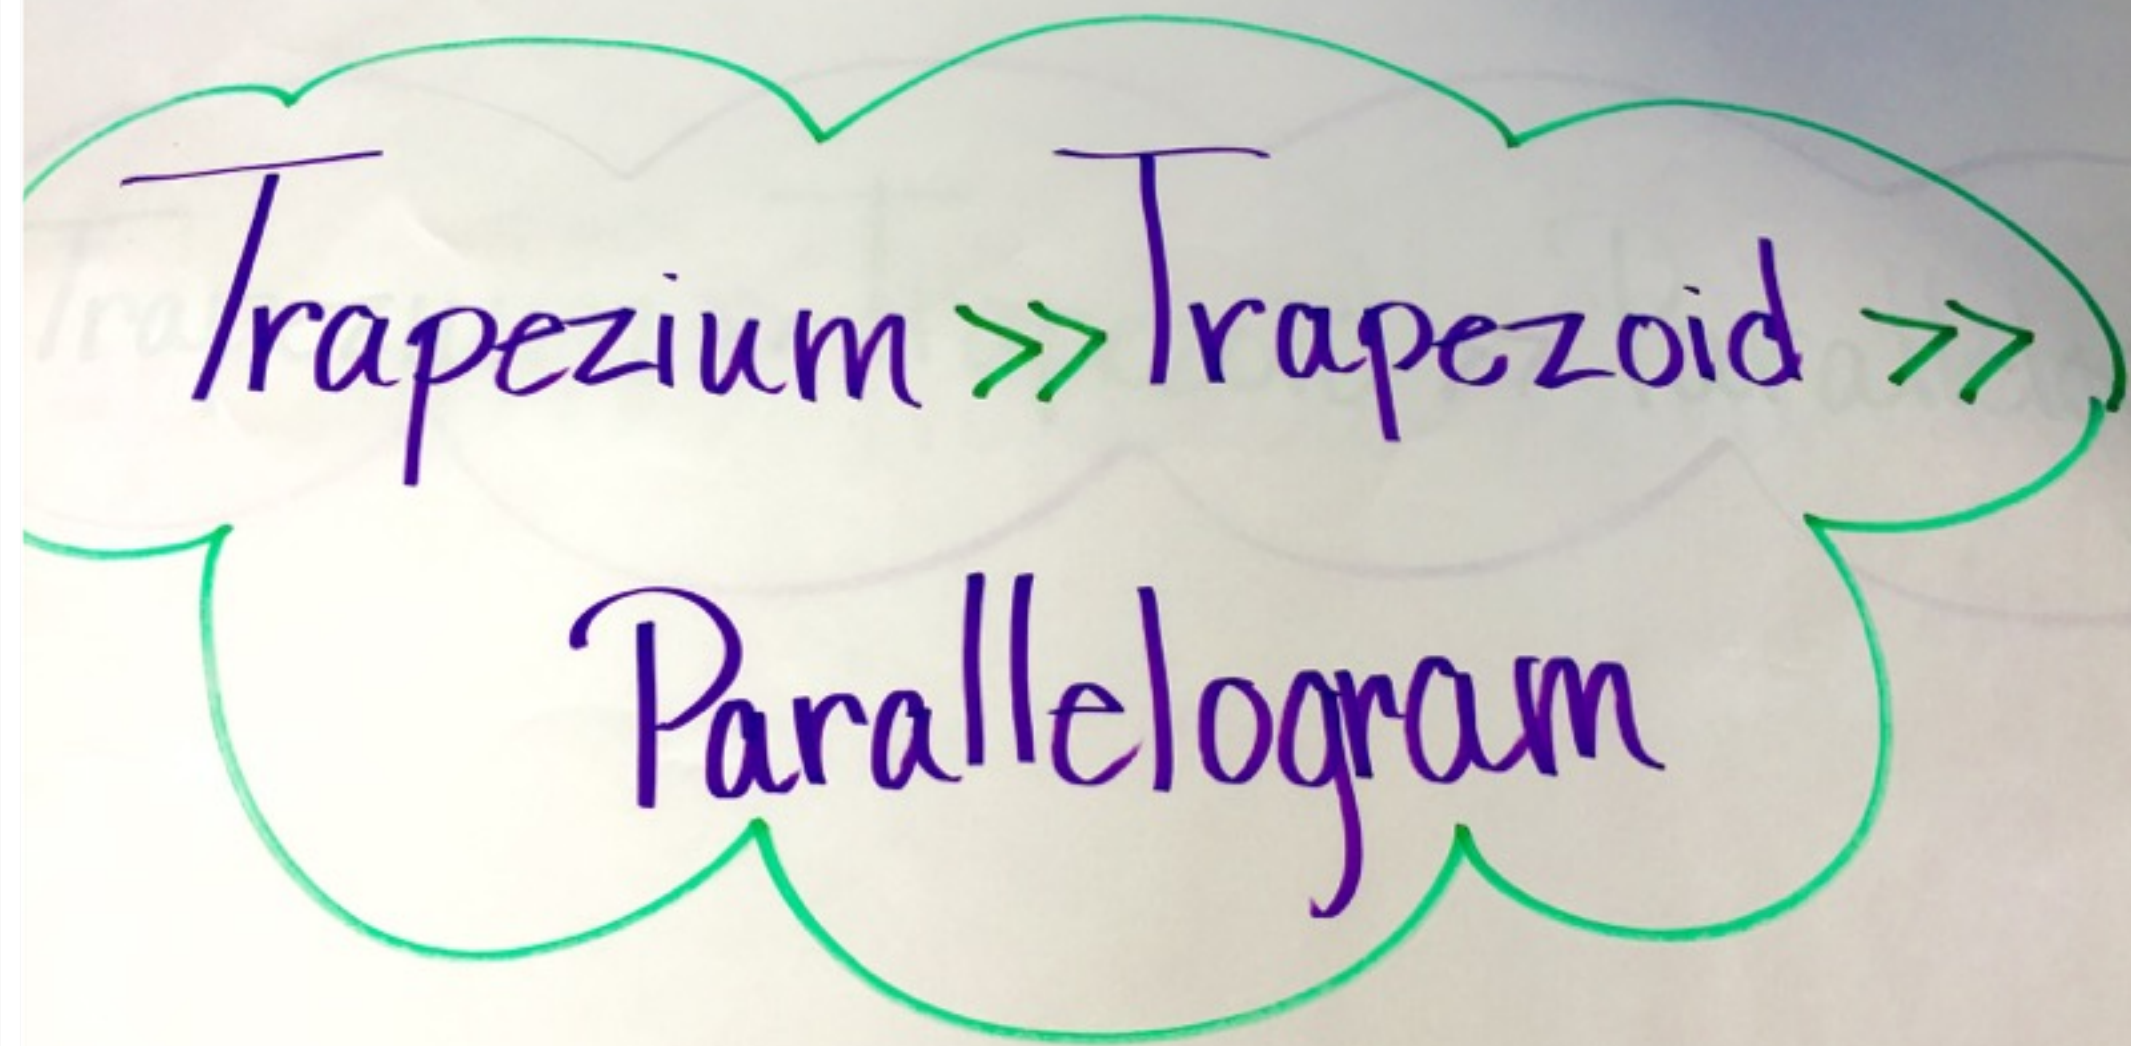 Trapezium >> Trapezoid >>
Parallelogram